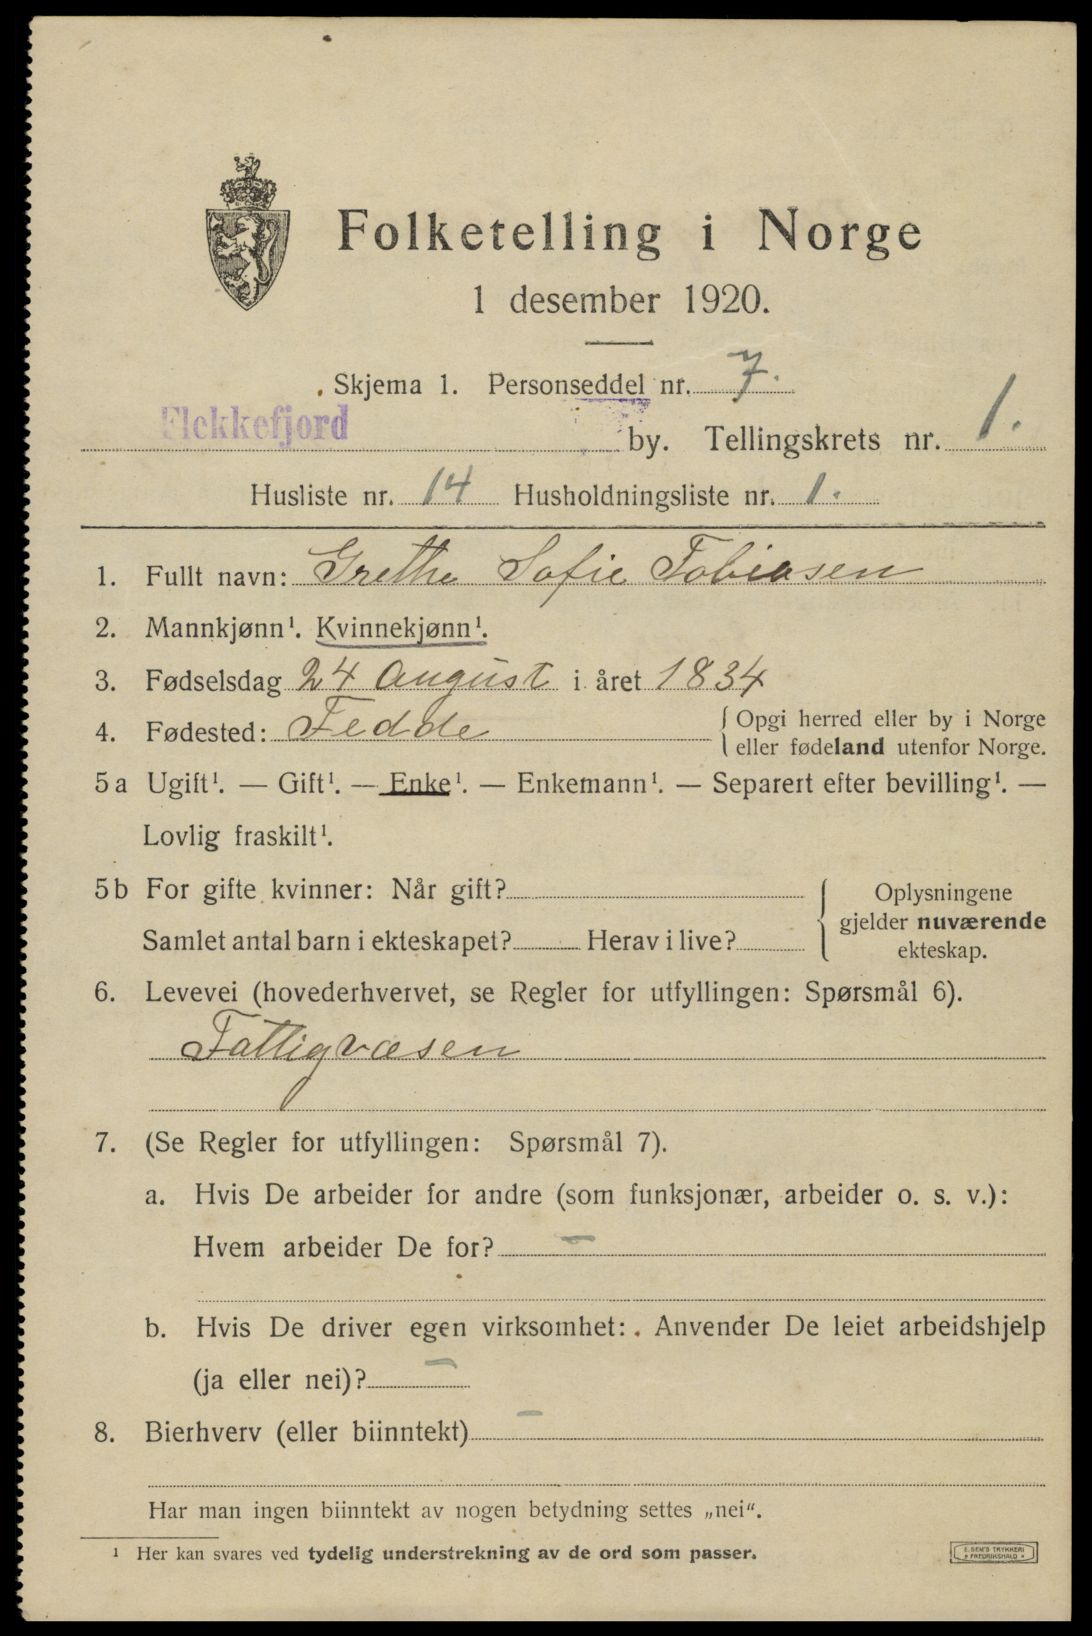 Folketelling i Norge
1 desember 1920.
Skjema 1. Personseddel nr. 7.
Flekkefjord by. Tellingskrets nr. 1.
Husliste nr. 14 Husholdningsliste nr. 1.
1. Fullt navn: Grethe Sofie Tobiasen
2. Mannkjønn¹. Kvinnekjønn¹.
3. Fødselsdag 24 august i året 1834
4. Fødested: Fedde { Opgi herred eller by i Norge
eller fødeland utenfor Norge.
5 a Ugift¹. — Gift¹. — Enke¹. — Enkemann¹. — Separert efter bevilling¹. —
Lovlig fraskilt¹.
5 b For gifte kvinner: Når gift?
Samlet antal barn i ekteskapet? Herav i live?
{ Oplysningene
gjelder nuværende
ekteskap.
6. Levevei (hovederhvervet, se Regler for utfyllingen: Spørsmål 6).
Fattigvæsen
7. (Se Regler for utfyllingen: Spørsmål 7).
a. Hvis De arbeider for andre (som funksjonær, arbeider o. s. v.):
Hvem arbeider De for? –
b. Hvis De driver egen virksomhet: . Anvender De leiet arbeidshjelp
(ja eller nei)? –
8. Bierhverv (eller biinntekt) –
Har man ingen biinntekt av nogen betydning settes „nei“.
¹ Her kan svares ved tydelig understrekning av de ord som passer.
E. SEM'S TRYKKERI
FREDRIKSHALD